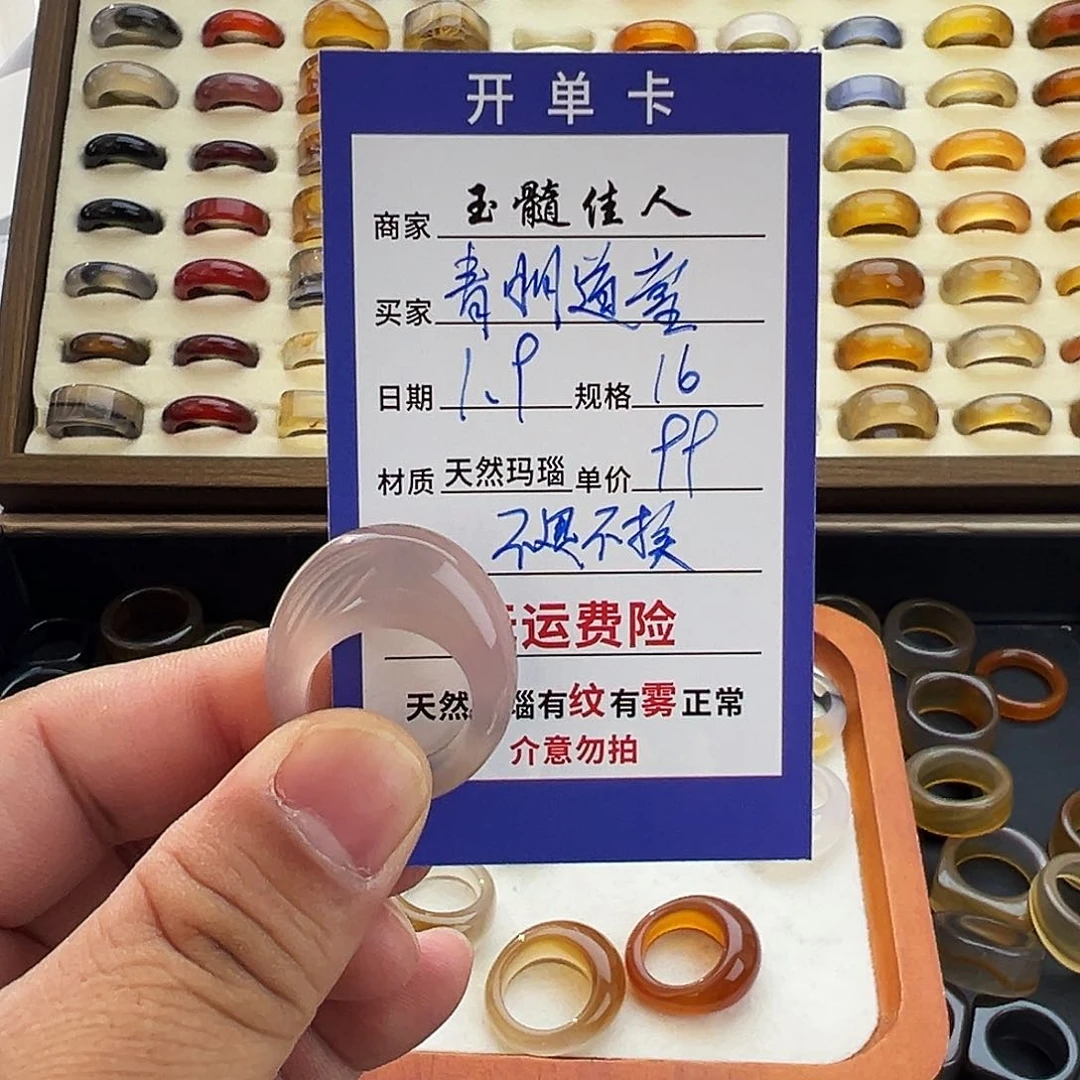 开单卡
商家 玉髓佳人
买家 青州道童
日期 1.9 规格 16
材质 天然玛瑙 单价 99
不退不换
运费险
天然 瑙有纹有雾正常
介意勿拍